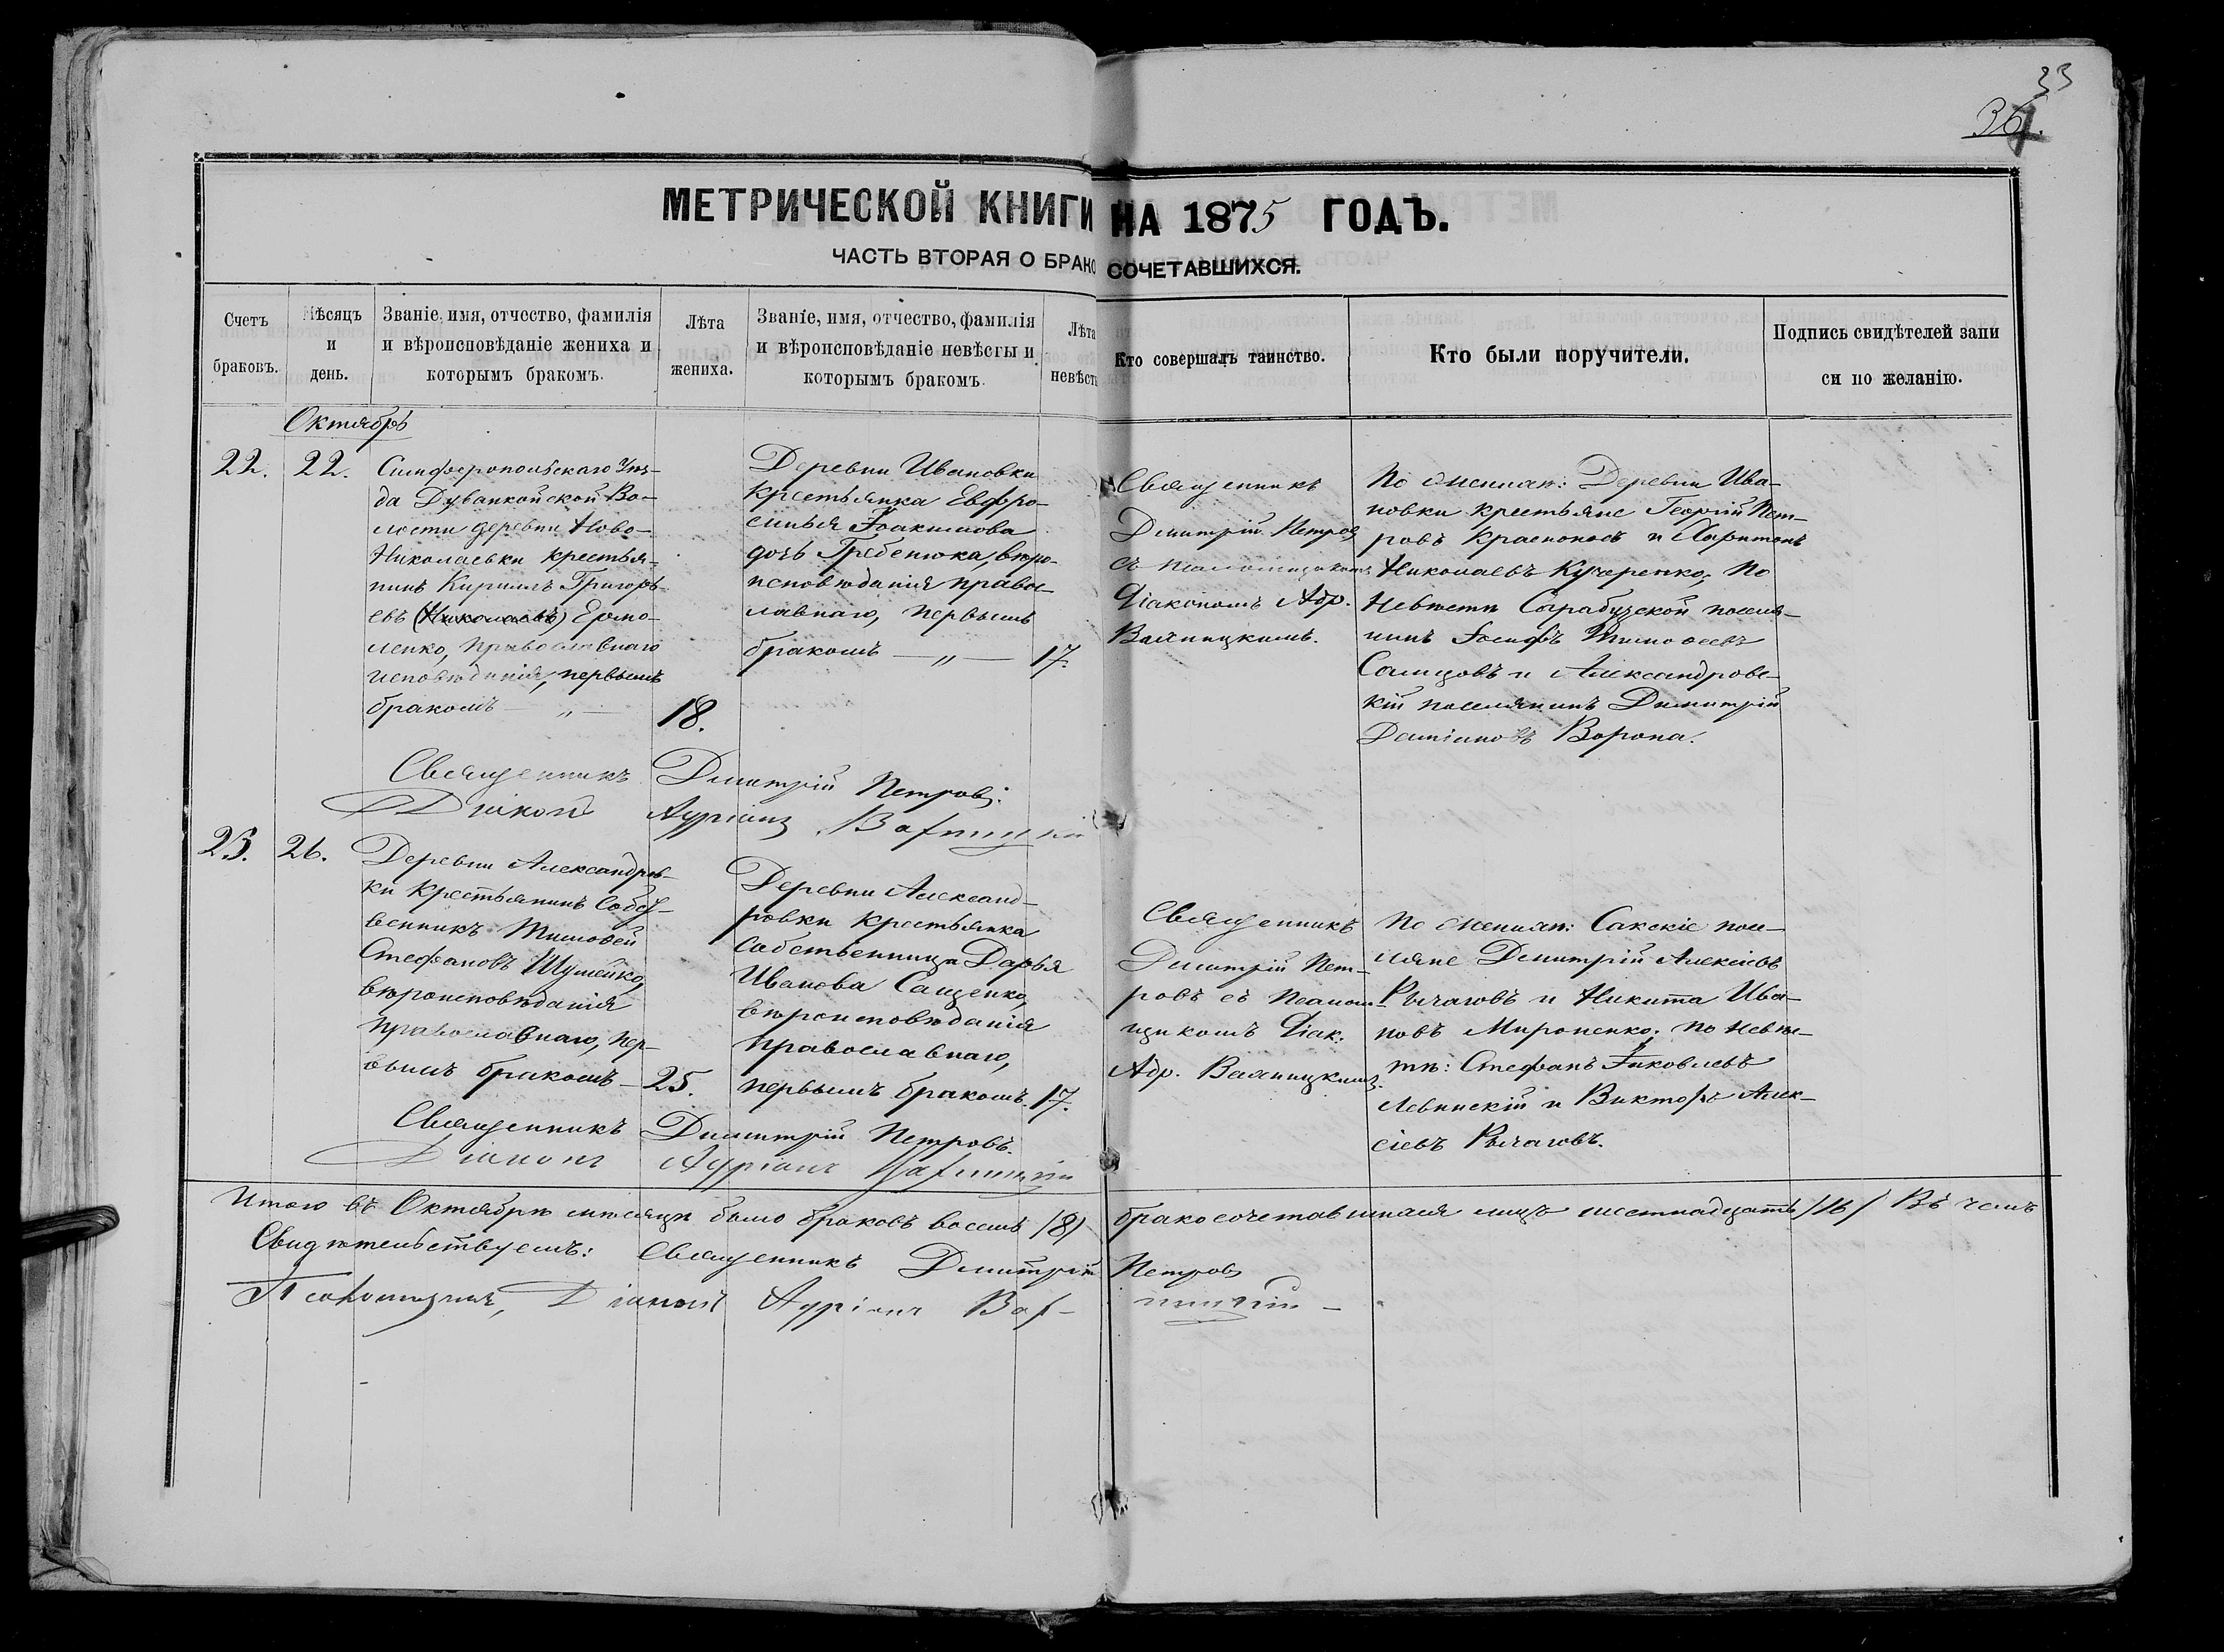 33
36
МЕТРИЧЕСКОЙ КНИГИ НА 1875 ГОДЪ.
ЧАСТЬ ВТОРАЯ О БРАКОСОЧЕТАВШИХСЯ.
Счетъ браковъ.
Мѣсяцъ и день.
Званіе, имя, отчество, фамилія и вѣроисповѣданіе жениха и которымъ бракомъ.
Лѣта жениха.
Званіе, имя, отчество, фамилія и вѣроисповѣданіе невѣсты и которымъ бракомъ.
Лѣта невѣсты
Кто совершалъ таинство.
Кто были поручители.
Подпись свидѣтелей запи
си по желанію.
Октябрь
22.
22.
Симферопольскаго Уѣз-
да Дуванкойской Во-
лости деревни Ново-
Николаевки крестья-
нинъ Кирилъ Григорь-
евъ (Николаевъ) Ермо-
ленко, православнаго
исповѣданія, первымъ
бракомъ — „ —
18.
Деревни Ивановки
крестьянка Евфро-
синья Іоакимова
дочь Гребенюка, вѣро-
исповѣданія право-
славнаго, первымъ
бракомъ — „ —
17.
Священникъ
Димитрій Петров
съ псаломщикомъ
Діакономъ Адр.
Варницкимъ.
По женихѣ: Деревни Ива-
новки крестьяне Георгій Пет-
ровъ Красноносъ и Харитонъ
Николаевъ Кучеренко, По
Невѣстѣ Сарабузской посел-
нинъ Іосифъ Тимофеевъ
Самцовъ и Александровс-
кій поселянинъ Димитрій
Даміановъ Ворона.
Священникъ Димитрій Петровъ.
Діаконъ Адріанъ Варницкій
23.
26.
Деревни Александров-
ки Крестьянинъ Собст-
венникъ Тимофей
Стефановъ Шумейко,
вѣроисповѣданія
православнаго, пер-
вымъ бракомъ —
25.
Деревни Александ-
ровки крестьянка
собственница Дарья
Иванова Сащенко,
вѣроисповѣданія
православнаго,
первымъ бракомъ.
17.
Священникъ
Димитрій Пет-
ровъ съ псалом-
щикомъ Діак.
Адр. Варницкимъ.
По женихѣ: Сакскіе посе-
ляне Димитрій Алексіевъ
Рычаговъ и Никита Ива-
новъ Мироненко; по невѣс-
тѣ: Стефанъ Іаковлевъ
Левинскій и Викторъ Алек-
сіевъ Рычаговъ.
Священникъ Димитрій Петровъ.
Діаконъ Адріанъ Варницкій
Итого въ Октябрѣ мѣсяцѣ было браковъ восемь /8/ бракосочетавшихся лицъ шестнадцать /16/ Въ чемъ
Свидѣтельствуемъ: Священникъ Димитрій Петровъ
Псаломщикъ, Діаконъ Адріанъ Вар-ницкій —